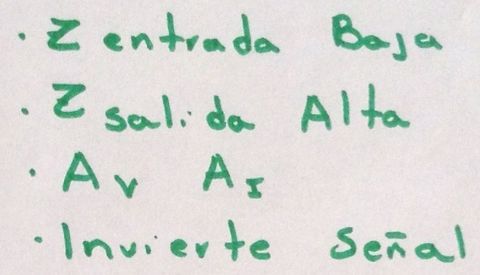 · Z entrada Baja
· Z salida Alta
· Av AI
· Invierte señal